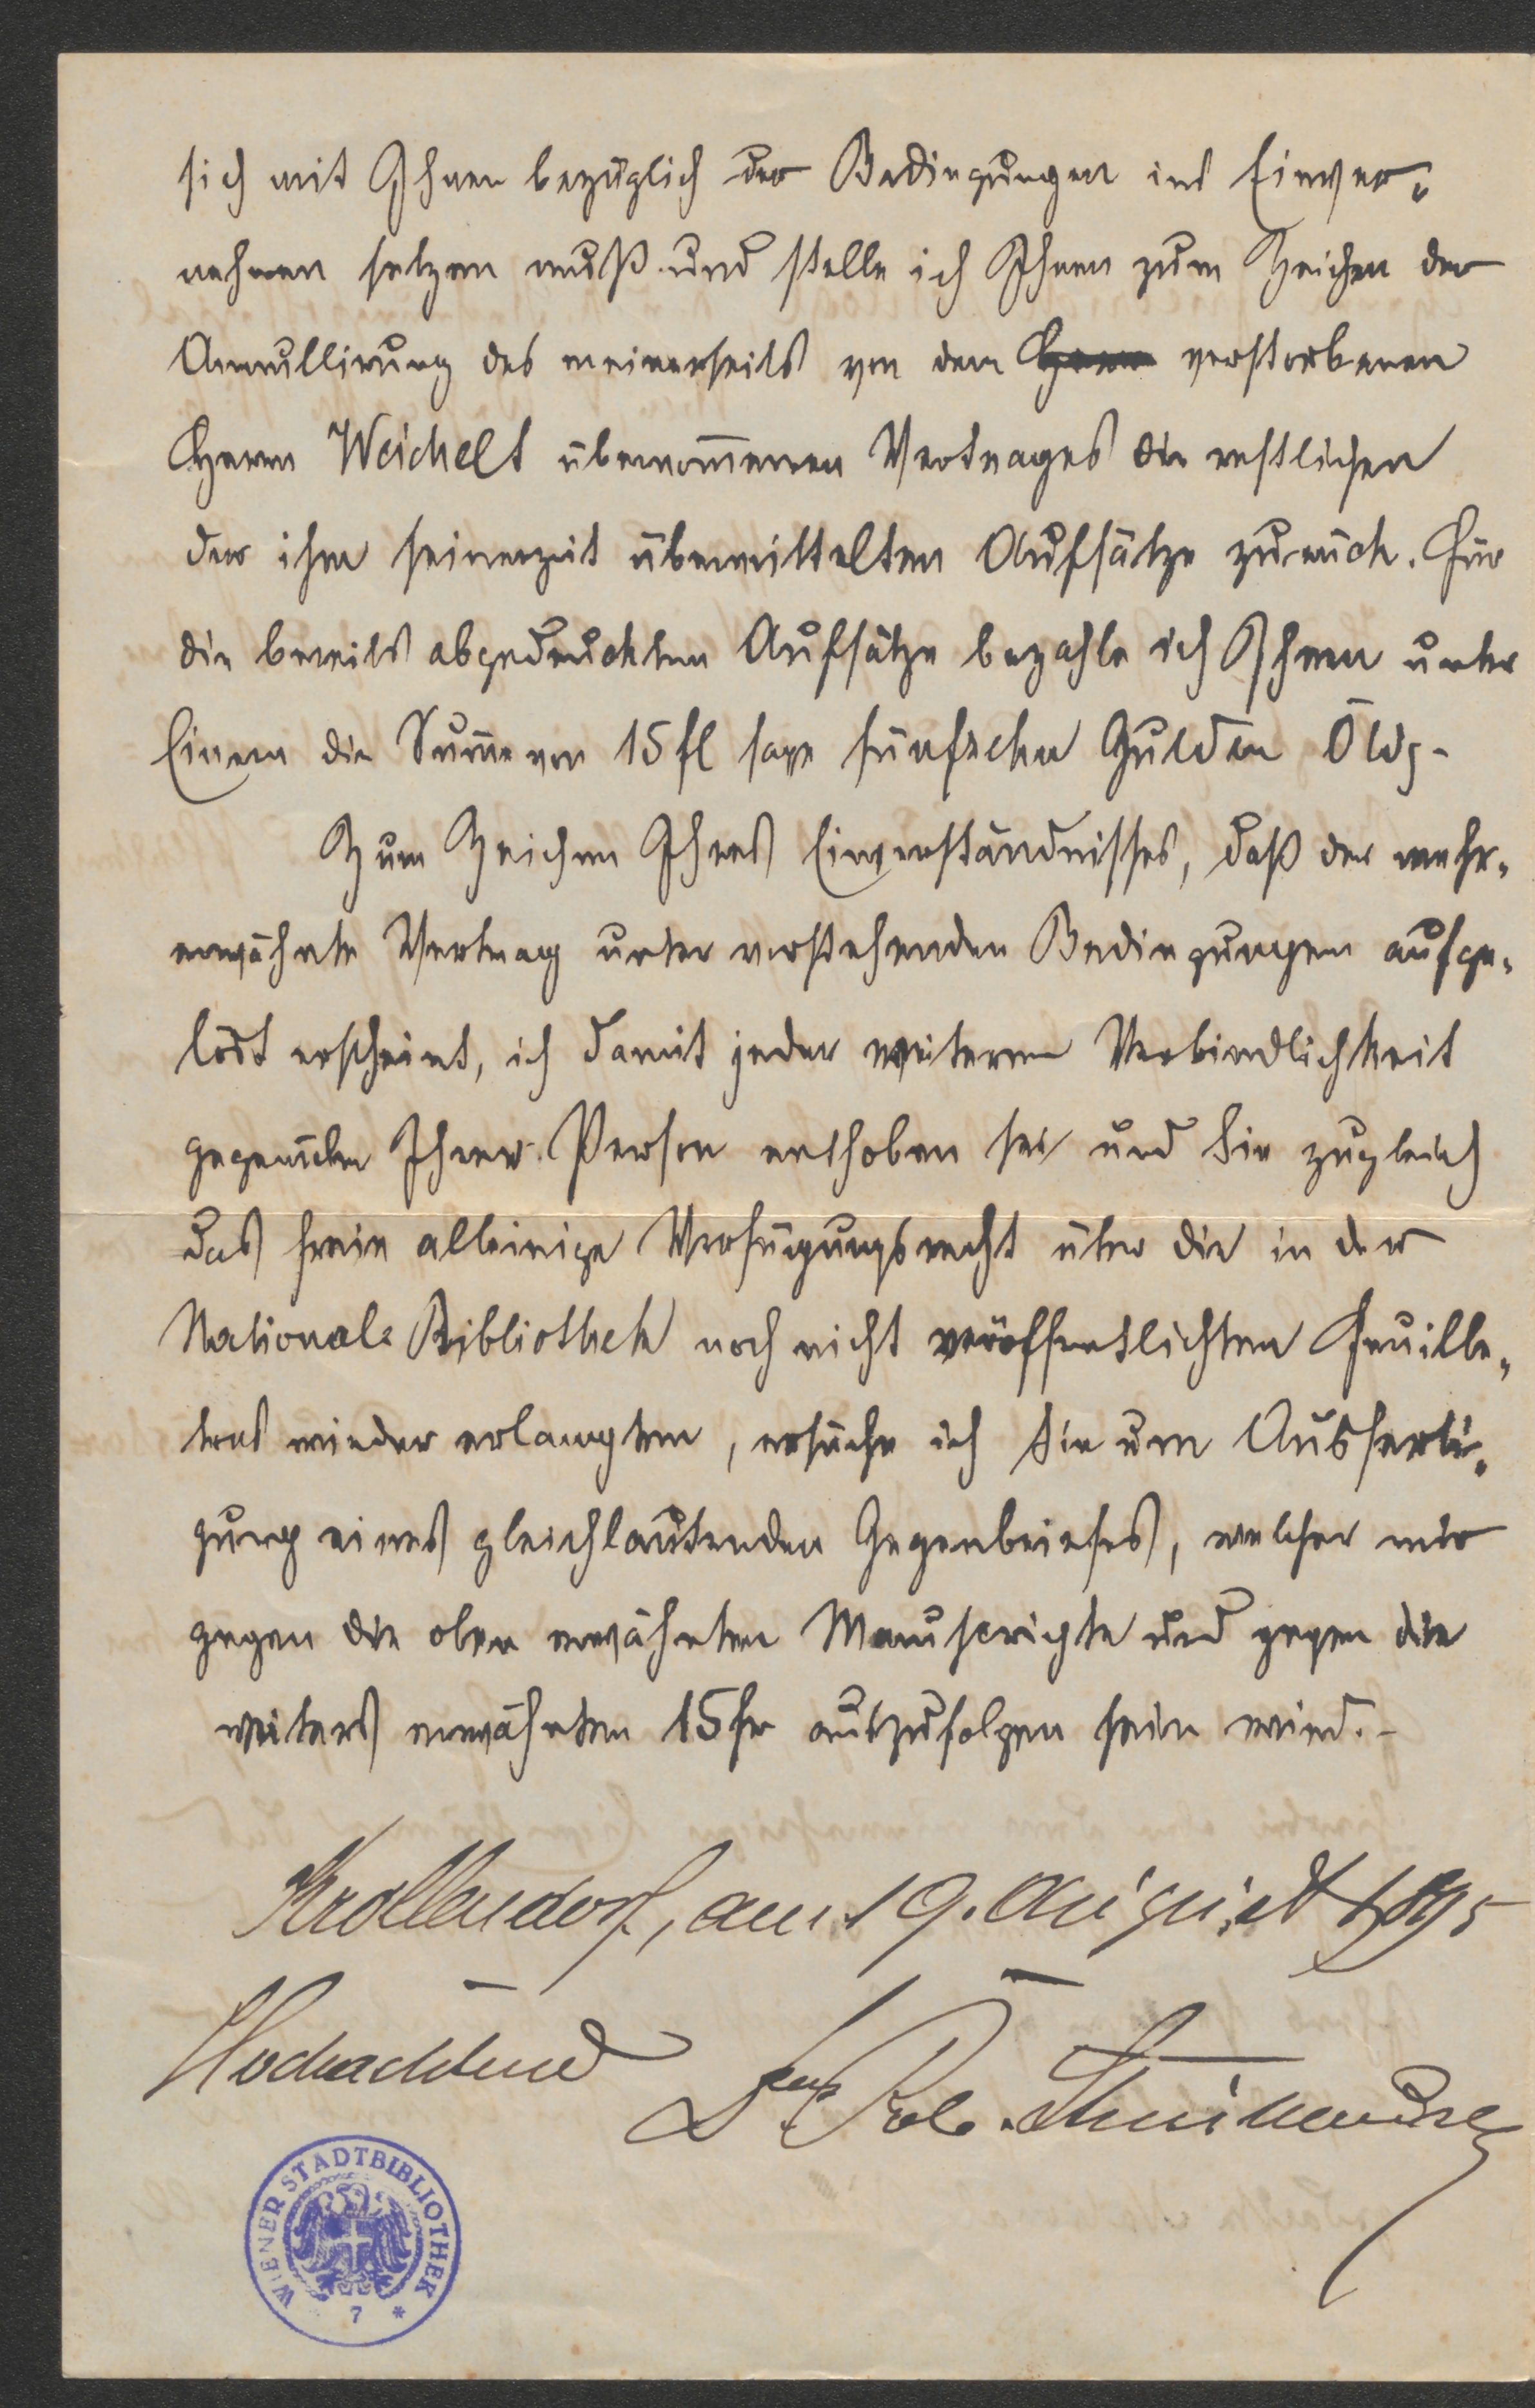 sich mit Ihnen bezüglich der Bedingungen ins Einver-
nehmen setzen muß und stelle ich Ihnen zum Zeichen der
Annullirung des meinerseits von dem verstorbenen
Herrn Weichelt übernommenen Vertrages die restlichen
der ihm seinerzeit übermittelten Aufsätze zurück. Für
die bereits abgedruckten Aufsätze bezahle ich Ihnen unter
Einem die Summe von 15 fl sage fünfzehn Gulden
Zum Zeichen Ihres Einverständnisses, daß der mehr-
erwähnte Vertrag unter vorstehenden Bedingungen aufge-
löst erscheint, ich damit jeder weiteren Verbindlichkeit
gegenüber Ihrer Person enthoben sei und Sie zugleich
das freie alleinige Verfügungsrecht über die in der
National-Bibliothek noch nicht veröffentlichten Feuille-
tons wieder erlangten, ersuche ich Sie um Ausferti-
gung eines gleichlautenden Gegenbriefes, welcher mir
gegen die oben erwähnten Manuscripte und gegen die
weiters erwähnten 15 fr auszufolgen sein wird.-
am 19. August 1895
Hochachtend
Dr. Rob.
WIENER STADTBIBLIOTHEK
7 *